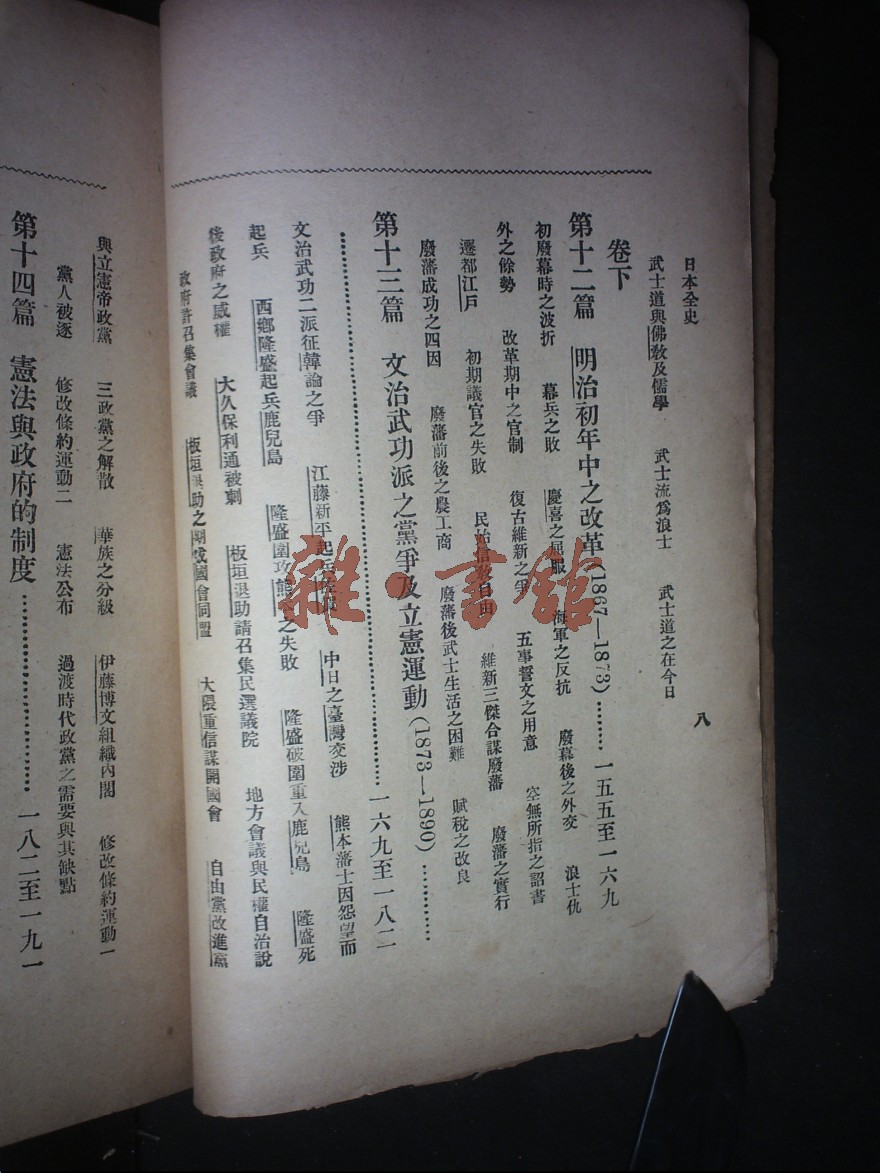 日本全史
八
武士道與佛敎及儒學 武士流爲浪士 武士道之在今日
卷下
第十二篇 明治初年中之改革(1867—1873)………一五五至一六九
初廢幕時之波折 幕兵之敗 慶喜之屈服 海軍之反抗 廢幕後之外交 浪士仇
外之餘勢 改革期中之官制 復古維新之爭 五事誓文之用意 空無所指之詔書
遷都江戶 初期議官之失敗 民始信敎自由 維新三傑合謀廢藩 廢藩之實行
廢藩成功之四因 廢藩前後之農工商 廢藩後武士生活之困難 賦稅之改良
第十三篇 文治武功派之黨爭及立憲運動(1873—1890)…………
………………………………………一六九至一八二
文治武功二派征韓論之爭 江藤新平起兵 中日之臺灣交涉 熊本藩士因怨望而
起兵 西鄉隆盛起兵鹿兒島 隆盛圍攻熊本之失敗 隆盛破圍重入鹿兒島 隆盛死
後政府之威權 大久保利通被刺 板垣退助請召集民選議院 地方會議與民權自治說
政府許召集會議 板垣退助之期成國會同盟 大隈重信謀開國會 自由黨改進黨
與立憲帝政黨 三政黨之解散 華族之分級 伊藤博文組織內閣 修改條約運動一
黨人被逐 修改條約運動二 憲法公布 過渡時代政黨之需要與其缺點
第十四篇 憲法與政府的制度………………一八二至一九一
雜·書館